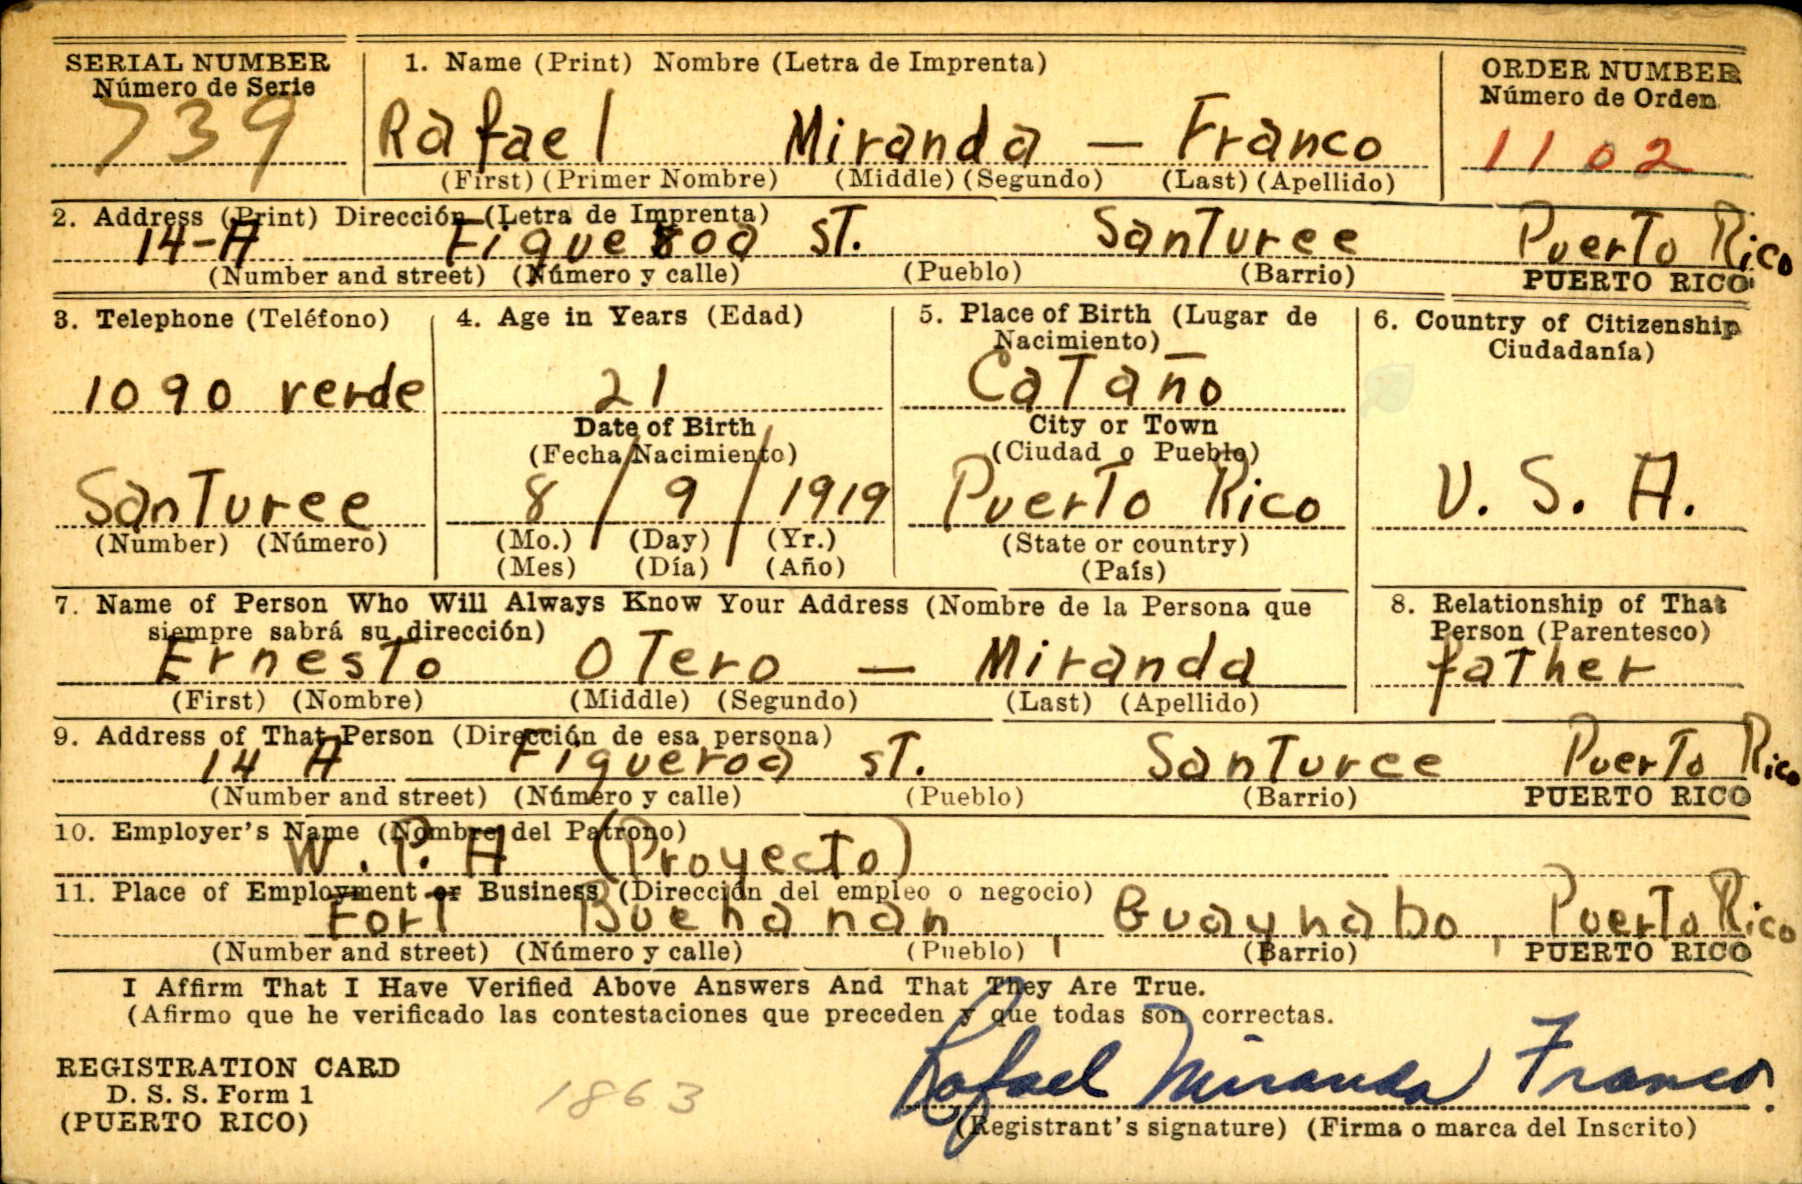 SERIAL NUMBER
Número de Serie
739
1. Name (Print) Nombre (Letra de Imprenta)
Rafael Miranda — Franco
(First) (Primer Nombre) (Middle) (Segundo) (Last) (Apellido)
ORDER NUMBER
Número de Orden
1102
2. Address (Print) Dirección (Letra de Imprenta)
14-A Figueroa ST. Santurce Puerto Rico
(Number and street) (Número y calle) (Pueblo) (Barrio) PUERTO RICO
3. Telephone (Teléfono)
1090 verde
Santurce
(Number) (Número)
4. Age in Years (Edad)
21
Date of Birth
(Fecha Nacimiento)
8 / 9 / 1919
(Mo.) (Day) (Yr.)
(Mes) (Día) (Año)
5. Place of Birth (Lugar de
Nacimiento)
Cataño
City or Town
(Ciudad o Pueblo)
Puerto Rico
(State or country)
(País)
6. Country of Citizenship
Ciudadanía)
U. S. A.
7. Name of Person Who Will Always Know Your Address (Nombre de la Persona que
siempre sabrá su dirección)
Ernesto Otero — Miranda
(First) (Nombre) (Middle) (Segundo) (Last) (Apellido)
8. Relationship of That
Person (Parentesco)
father
9. Address of That Person (Dirección de esa persona)
14 A Figueroa ST. Santurce Puerto Rico
(Number and street) (Número y calle) (Pueblo) (Barrio) PUERTO RICO
10. Employer's Name (Nombre del Patrono)
W. P. A (Proyecto)
11. Place of Employment or Business (Dirección del empleo o negocio)
Fort Buchanan, Guaynabo, Puerto Rico
(Number and street) (Número y calle) (Pueblo) (Barrio) PUERTO RICO
I Affirm That I Have Verified Above Answers And That They Are True.
(Afirmo que he verificado las contestaciones que preceden y que todas son correctas.
REGISTRATION CARD
D. S. S. Form 1
(PUERTO RICO)
1863
Rafael Miranda Franco.
(Registrant's signature) (Firma o marca del Inscrito)